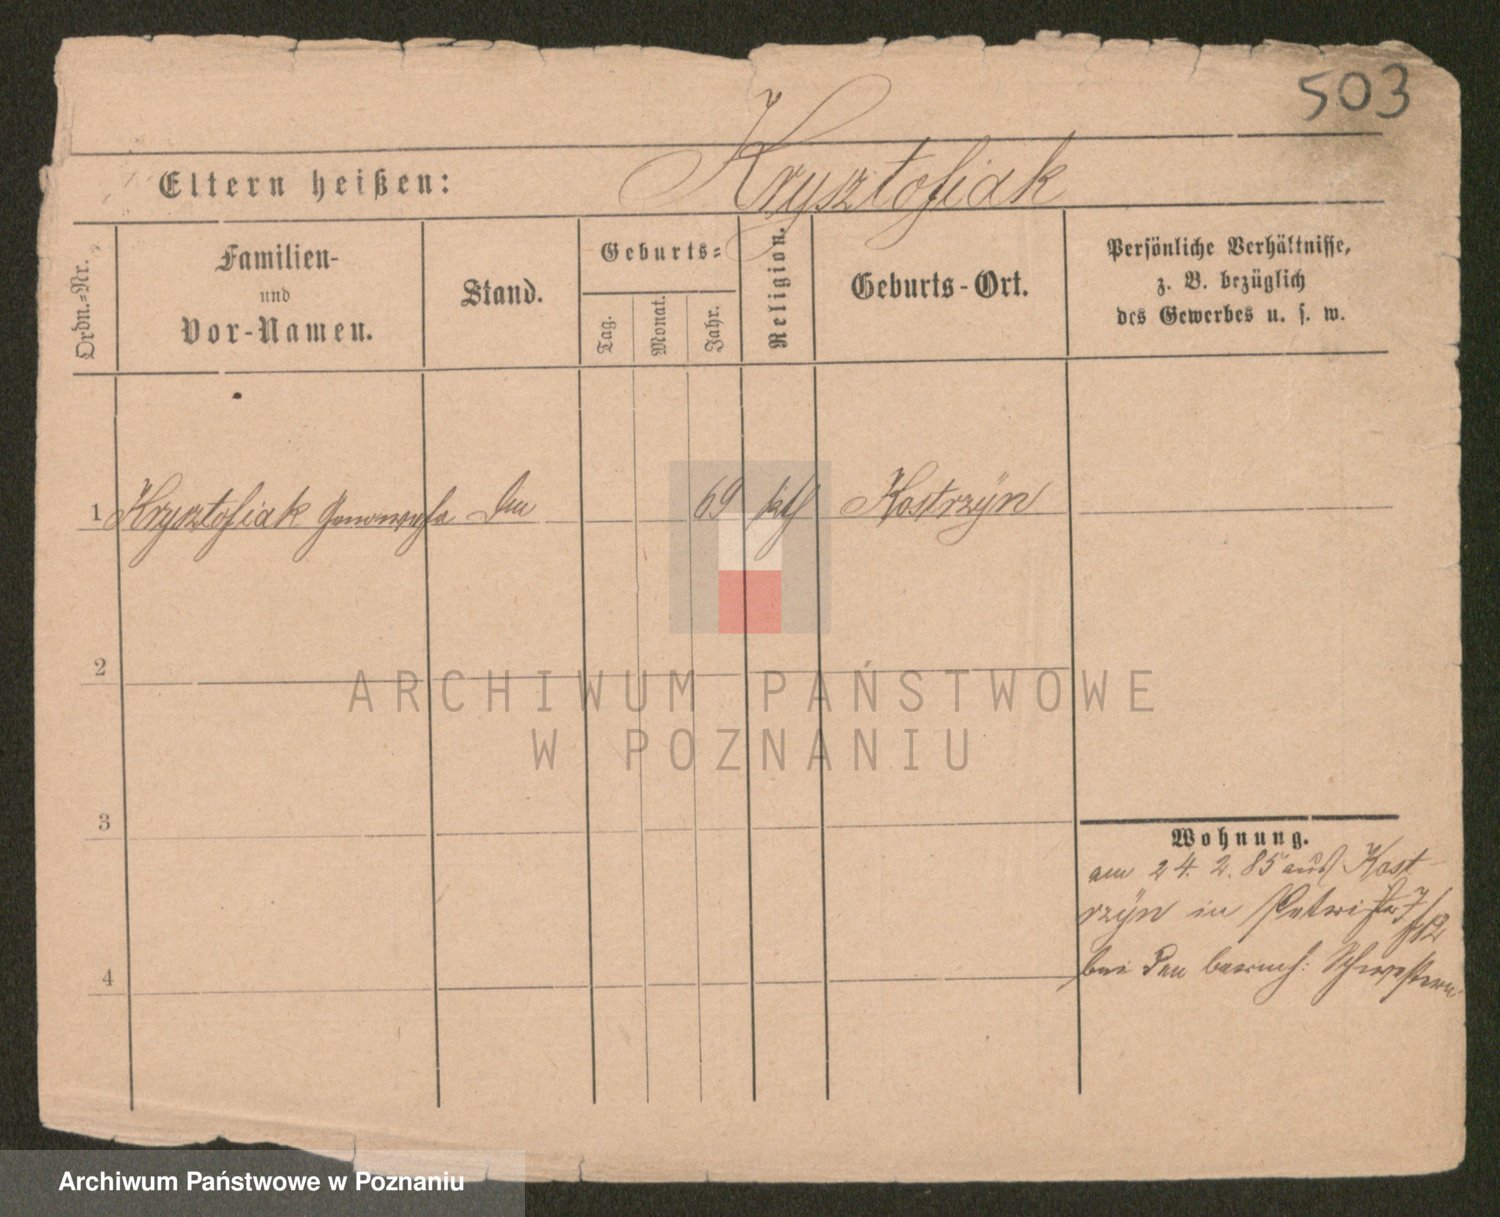 503
Eltern heißen: Krysztofiak
Ordn.-Nr.
Familien-
und
Vor-Namen.
Stand.
Geburts-
Tag.
Monat.
Jahr.
Religion.
Geburts-Ort.
Persönliche Verhältnisse,
z. B. bezüglich
des Gewerbes u. s. w.
1 Krysztofiak Genowefa 69 kth Kostrzyn
2
ARCHIWUM PAŃSTWOWE
W POZNANIU
3
Wohnung.
am 24. 2. 85 aus Kost
rzyn in Petri
4
bei den barmh: Schwestern
Archiwum Państwowe w Poznaniu